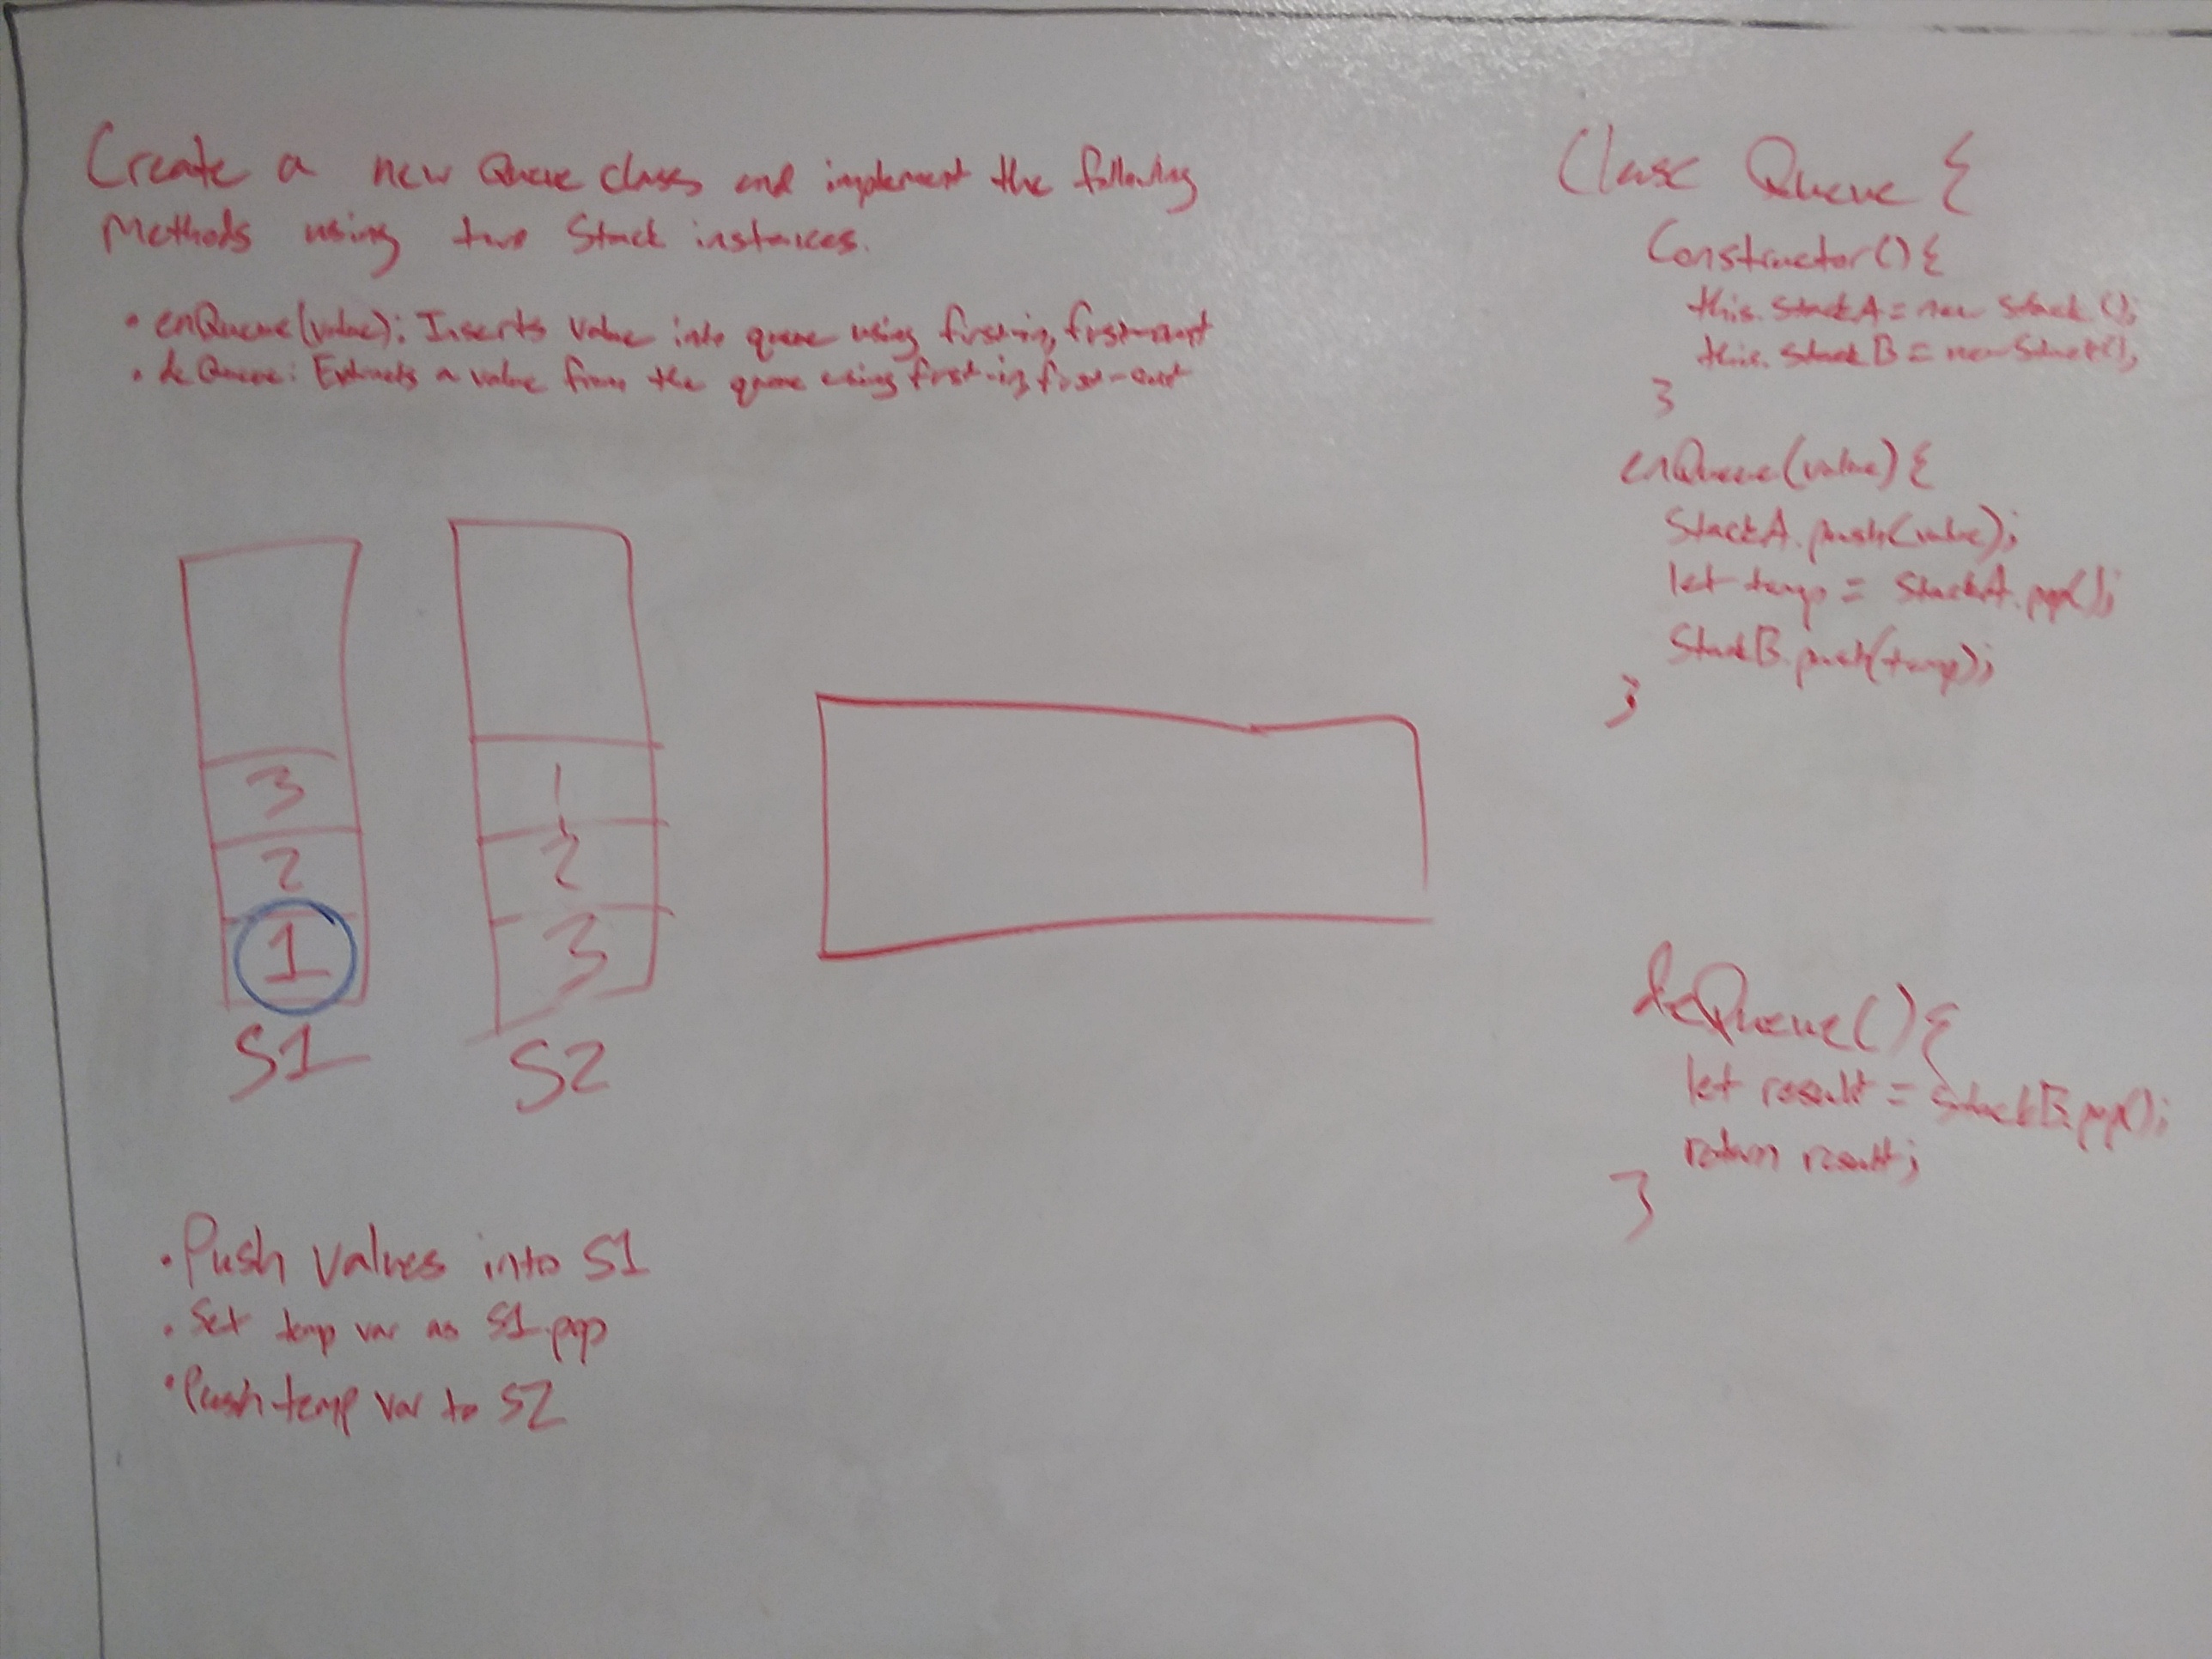 Create a new Queue class and implement the following
Methods using two Stack instances.
• enQueue(value): Inserts value into queue using first-in, first-out
• deQueue: Extracts a value from the queue using first-in, first-out
3
2
1
S1
1
2
3
S2
• Push values into S1
• Set temp var as S1.pop
• Push temp var to S2
Class Queue {
Constructor() {
this.stackA = new Stack();
this.stackB = new Stack();
}
enQueue(value) {
StackA.push(value);
let temp = StackA.pop();
StackB.push(temp);
}
deQueue() {
let result = StackB.pop();
return result;
}